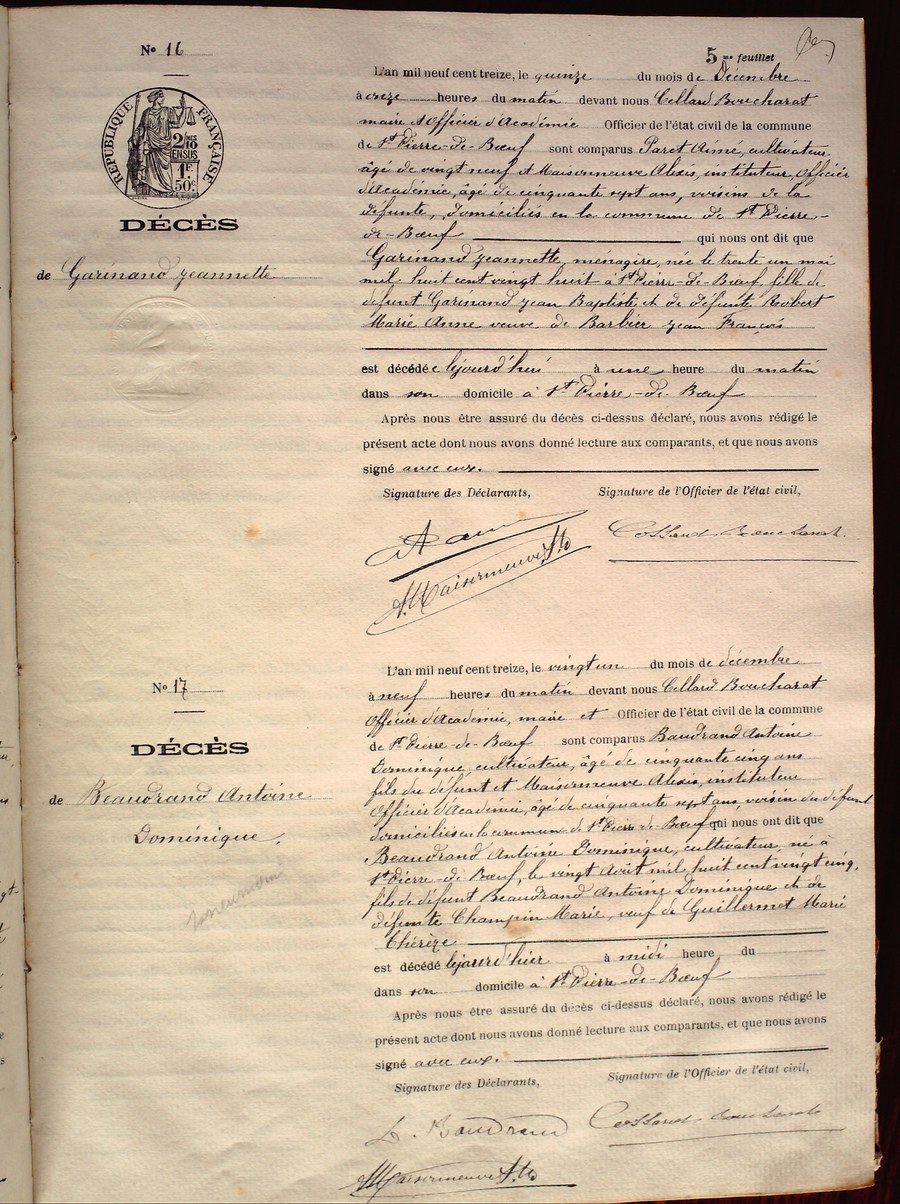 No 16
5 me feuillet
RÉPUBLIQUE FRANÇAISE
2/10
EN SUS
1F
50c
DÉCÈS
de Garinand Jeannette
L'an mil neuf cent treize, le quinze du mois de Décembre
à onze heures du matin devant nous Cellard Boucharat
maire et Officier d'Académie Officier de l'état civil de la commune
de St Pierre-de-Bœuf sont comparus Paret Aimé, cultivateur,
âgé de vingt neuf et Maisonneuve Alexis, instituteur, Officier
d'Académie, âgé de cinquante sept ans, voisins de la
défunte, domiciliés en la commune de St Pierre-
de-Bœuf qui nous ont dit que
Garinand Jeannette, ménagère, née le trente un mai
mil huit cent vingt huit à St Pierre-de-Bœuf, fille de
défunt Garinand Jean Baptiste et de défunte Robert
Marie Anne veuve de Barbier Jean François
est décédée cejourd'hui à une heure du matin
dans son domicile à St Pierre-de-Bœuf
Après nous être assuré du décès ci-dessus déclaré, nous avons rédigé le
présent acte dont nous avons donné lecture aux comparants, et que nous avons
signé avec eux.
Signature des Déclarants, Signature de l'Officier de l'état civil,
A. Maisonneuve
No 17
DÉCÈS
de Beaudrand Antoine
Dominique.
L'an mil neuf cent treize, le vingt un du mois de décembre
à neuf heures du matin devant nous Cellard Boucharat
Officier d'Académie, maire et Officier de l'état civil de la commune
de St Pierre-de-Bœuf sont comparus Baudrand Antoine
Dominique, cultivateur, âgé de cinquante cinq ans
fils du défunt et Maisonneuve Alexis, instituteur
Officier d'Académie, âgé de cinquante sept ans, voisin du défunt
domiciliés en la commune de St Pierre-de-Bœuf qui nous ont dit que
Beaudrand Antoine Dominique, cultivateur, né à
St Pierre-de-Bœuf, le vingt Août mil huit cent vingt cinq,
fils de défunt Beaudrand Antoine Dominique et de
défunte Champin Marie, veuf de Guillermet Marie
Thérèze
est décédé cejourd'hier à midi heure du
dans son domicile à St Pierre-de-Bœuf
Après nous être assuré du décès ci-dessus déclaré, nous avons rédigé le
présent acte dont nous avons donné lecture aux comparants, et que nous avons
signé avec eux.
Signature des Déclarants, Signature de l'Officier de l'état civil,
Baudrand
Maisonneuve